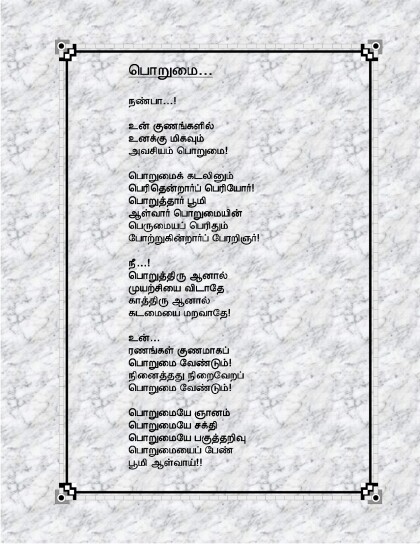 பொறுமை...
நண்பா...!
உன் குணங்களில்
உனக்கு மிகவும்
அவசியம் பொறுமை!
பொறுமைக் கடலினும்
பெரிதென்றார்ப் பெரியோர்!
பொறுத்தார் பூமி
ஆள்வார் பொறுமையின்
பெருமையப் பெரிதும்
போற்றுகின்றார்ப் பேரறிஞர்!
நீ...!
பொறுத்திரு ஆனால்
முயற்சியை விடாதே
காத்திரு ஆனால்
கடமையை மறவாதே!
உன்...
ரணங்கள் குணமாகப்
பொறுமை வேண்டும்!
நினைத்தது நிறைவேறப்
பொறுமை வேண்டும்!
பொறுமையே ஞானம்
பொறுமையே சக்தி
பொறுமையே பகுத்தறிவு
பொறுமையைப் பேண்
பூமி ஆள்வாய்!!